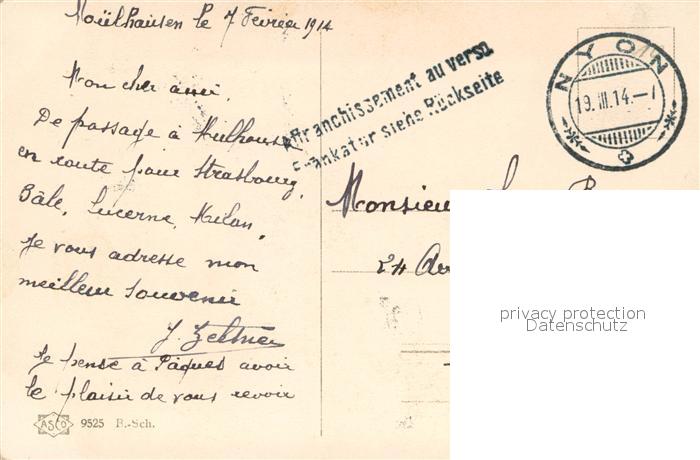 Moülhausen le 7 Février 1914
Mon cher ami,
De passage à Mulhouse
en route pour Strasbourg,
Bâle, Lucerne, Milan,
je vous adresse mon
meilleur souvenir
J. Zeltner
Je pense à Pâques avoir
le plaisir de vous revoir
ASCO 9525 B.-Sch.
Affranchissement au verso.
Frankatur siehe Rückseite
NYON
19.III.14.—1
Monsieur
24
privacy protection
Datenschutz